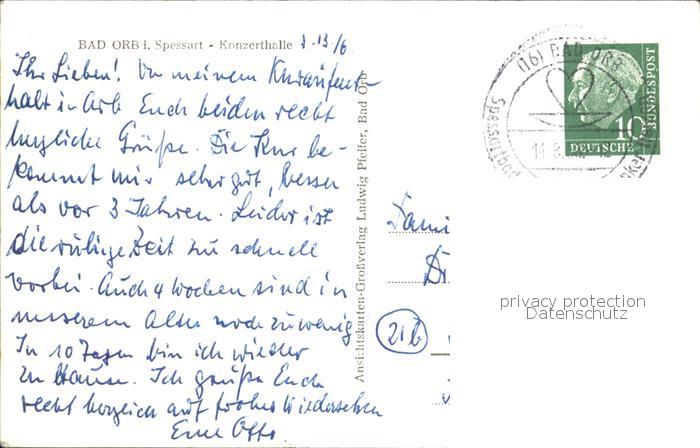 BAD ORB i. Spessart - Konzerthalle
Ihr Lieben! Von meinem Kuraufent-
halt in Orb Euch beiden recht
herzliche Grüße. Die Kur be-
kommt mir sehr gut, besser
als vor 3 Jahren. Leider ist
die ruhige Zeit zu schnell
vorbei. Auch 4 Wochen sind in
unserem Alter noch zu wenig
In 10 Tagen bin ich wieder
zu Hause. Ich grüße Euch
recht herzlich auf frohes Wiedersehen
Euer Otto
Ansichtskarten-Großverlag Ludwig Pfeifer, Bad Orb
(16) BAD ORB
Spessartbad
DEUTSCHE
BUNDESPOST
10
21b
privacy protection
Datenschutz